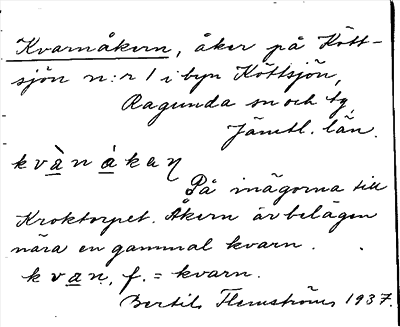 Kvarnåkern, åker på Kött-
sjön n:r 1 i byn Köttsjön,
Ragunda sn och tg
Jämtl. län.
kvànákaɳ
På inägorna till
Kroktorpet. Åkern är belägen
nära en gammal kvarn.
kvan, f. = kvarn.
Bertil Flemström 1937.